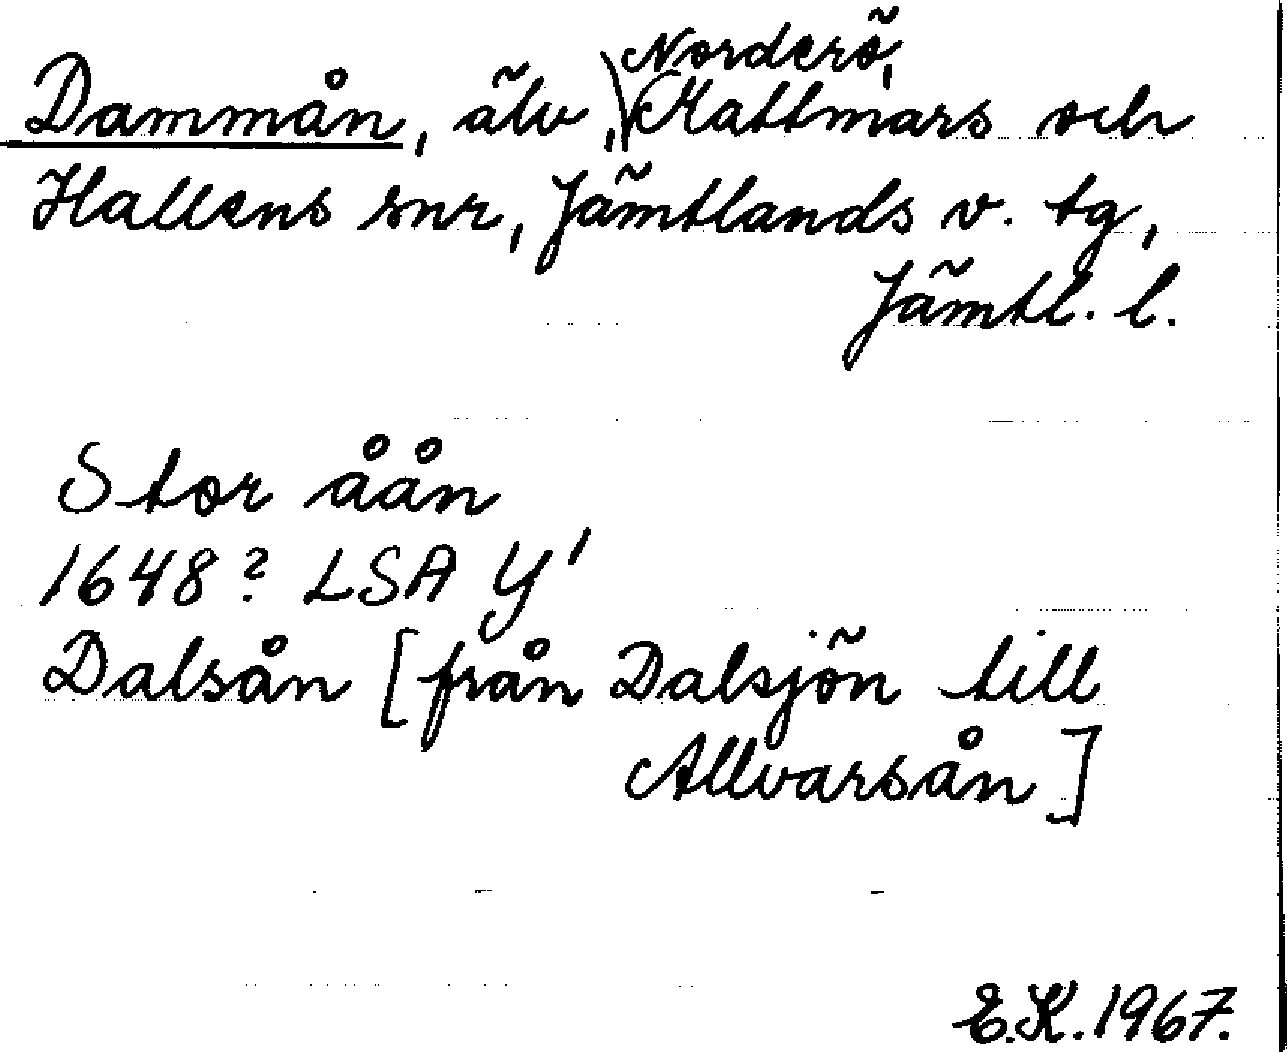 Dammån, älv, Norderö, Mattmars och
Hallens snr, Jämtlands v. tg,
Jämtl. l.
Stor åån
1648? LSA Y1
Dalsån [från Dalsjön till
Allvarsån]
E.K. 1967.